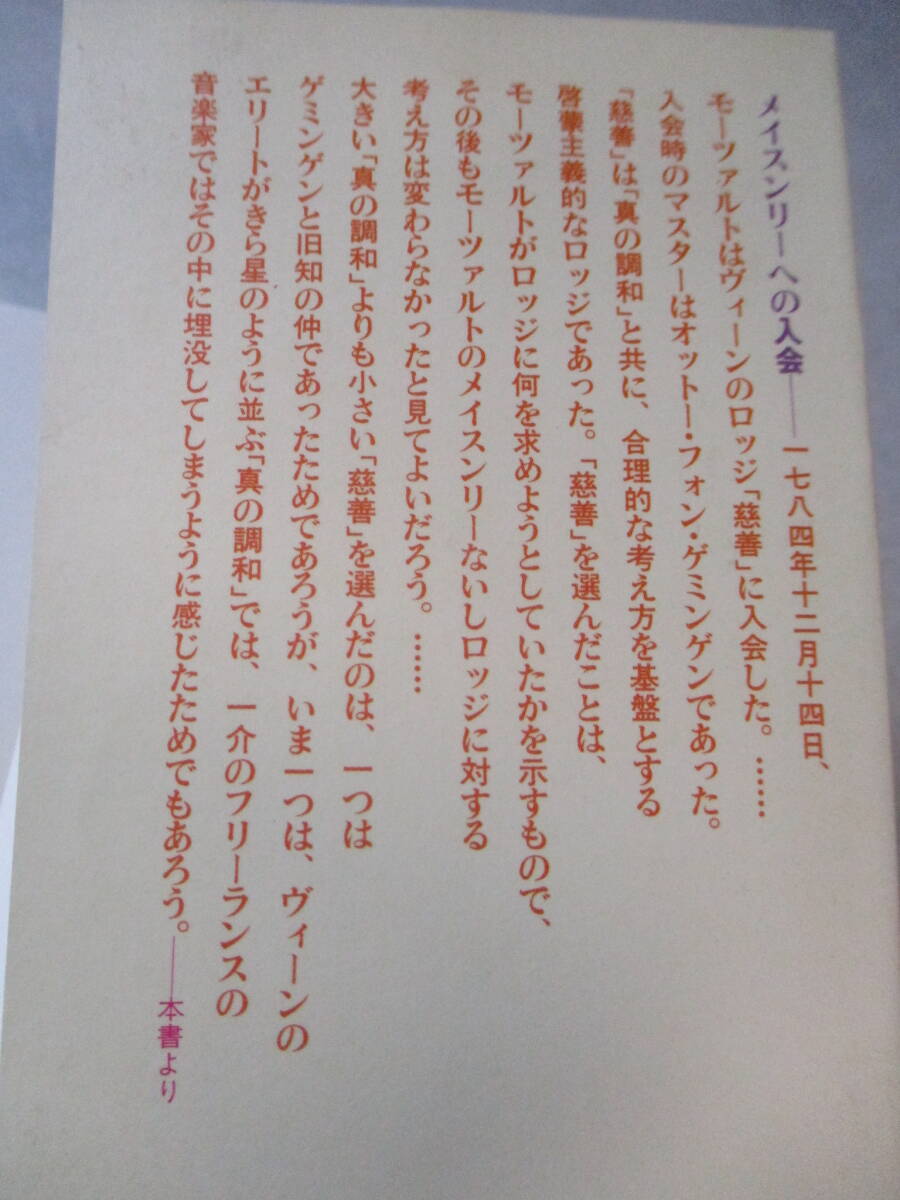 メイスンリーへの入会——一七八四年十二月十四日、
モーツァルトはヴィーンのロッジ「慈善」に入会した。……
入会時のマスターはオットー・フォン・ゲミンゲンであった。
「慈善」は「真の調和」と共に、合理的な考え方を基盤とする
啓蒙主義的なロッジであった。「慈善」を選んだことは、
モーツァルトがロッジに何を求めようとしていたかを示すもので、
その後もモーツァルトのメイスンリーないしロッジに対する
考え方は変わらなかったと見てよいだろう。……
大きい「真の調和」よりも小さい「慈善」を選んだのは、一つは
ゲミンゲンと旧知の仲であったためであろうが、いま一つは、ヴィーンの
エリートがきら星のように並ぶ「真の調和」では、一介のフリーランスの
音楽家ではその中に埋没してしまうように感じたためでもあろう。——本書より